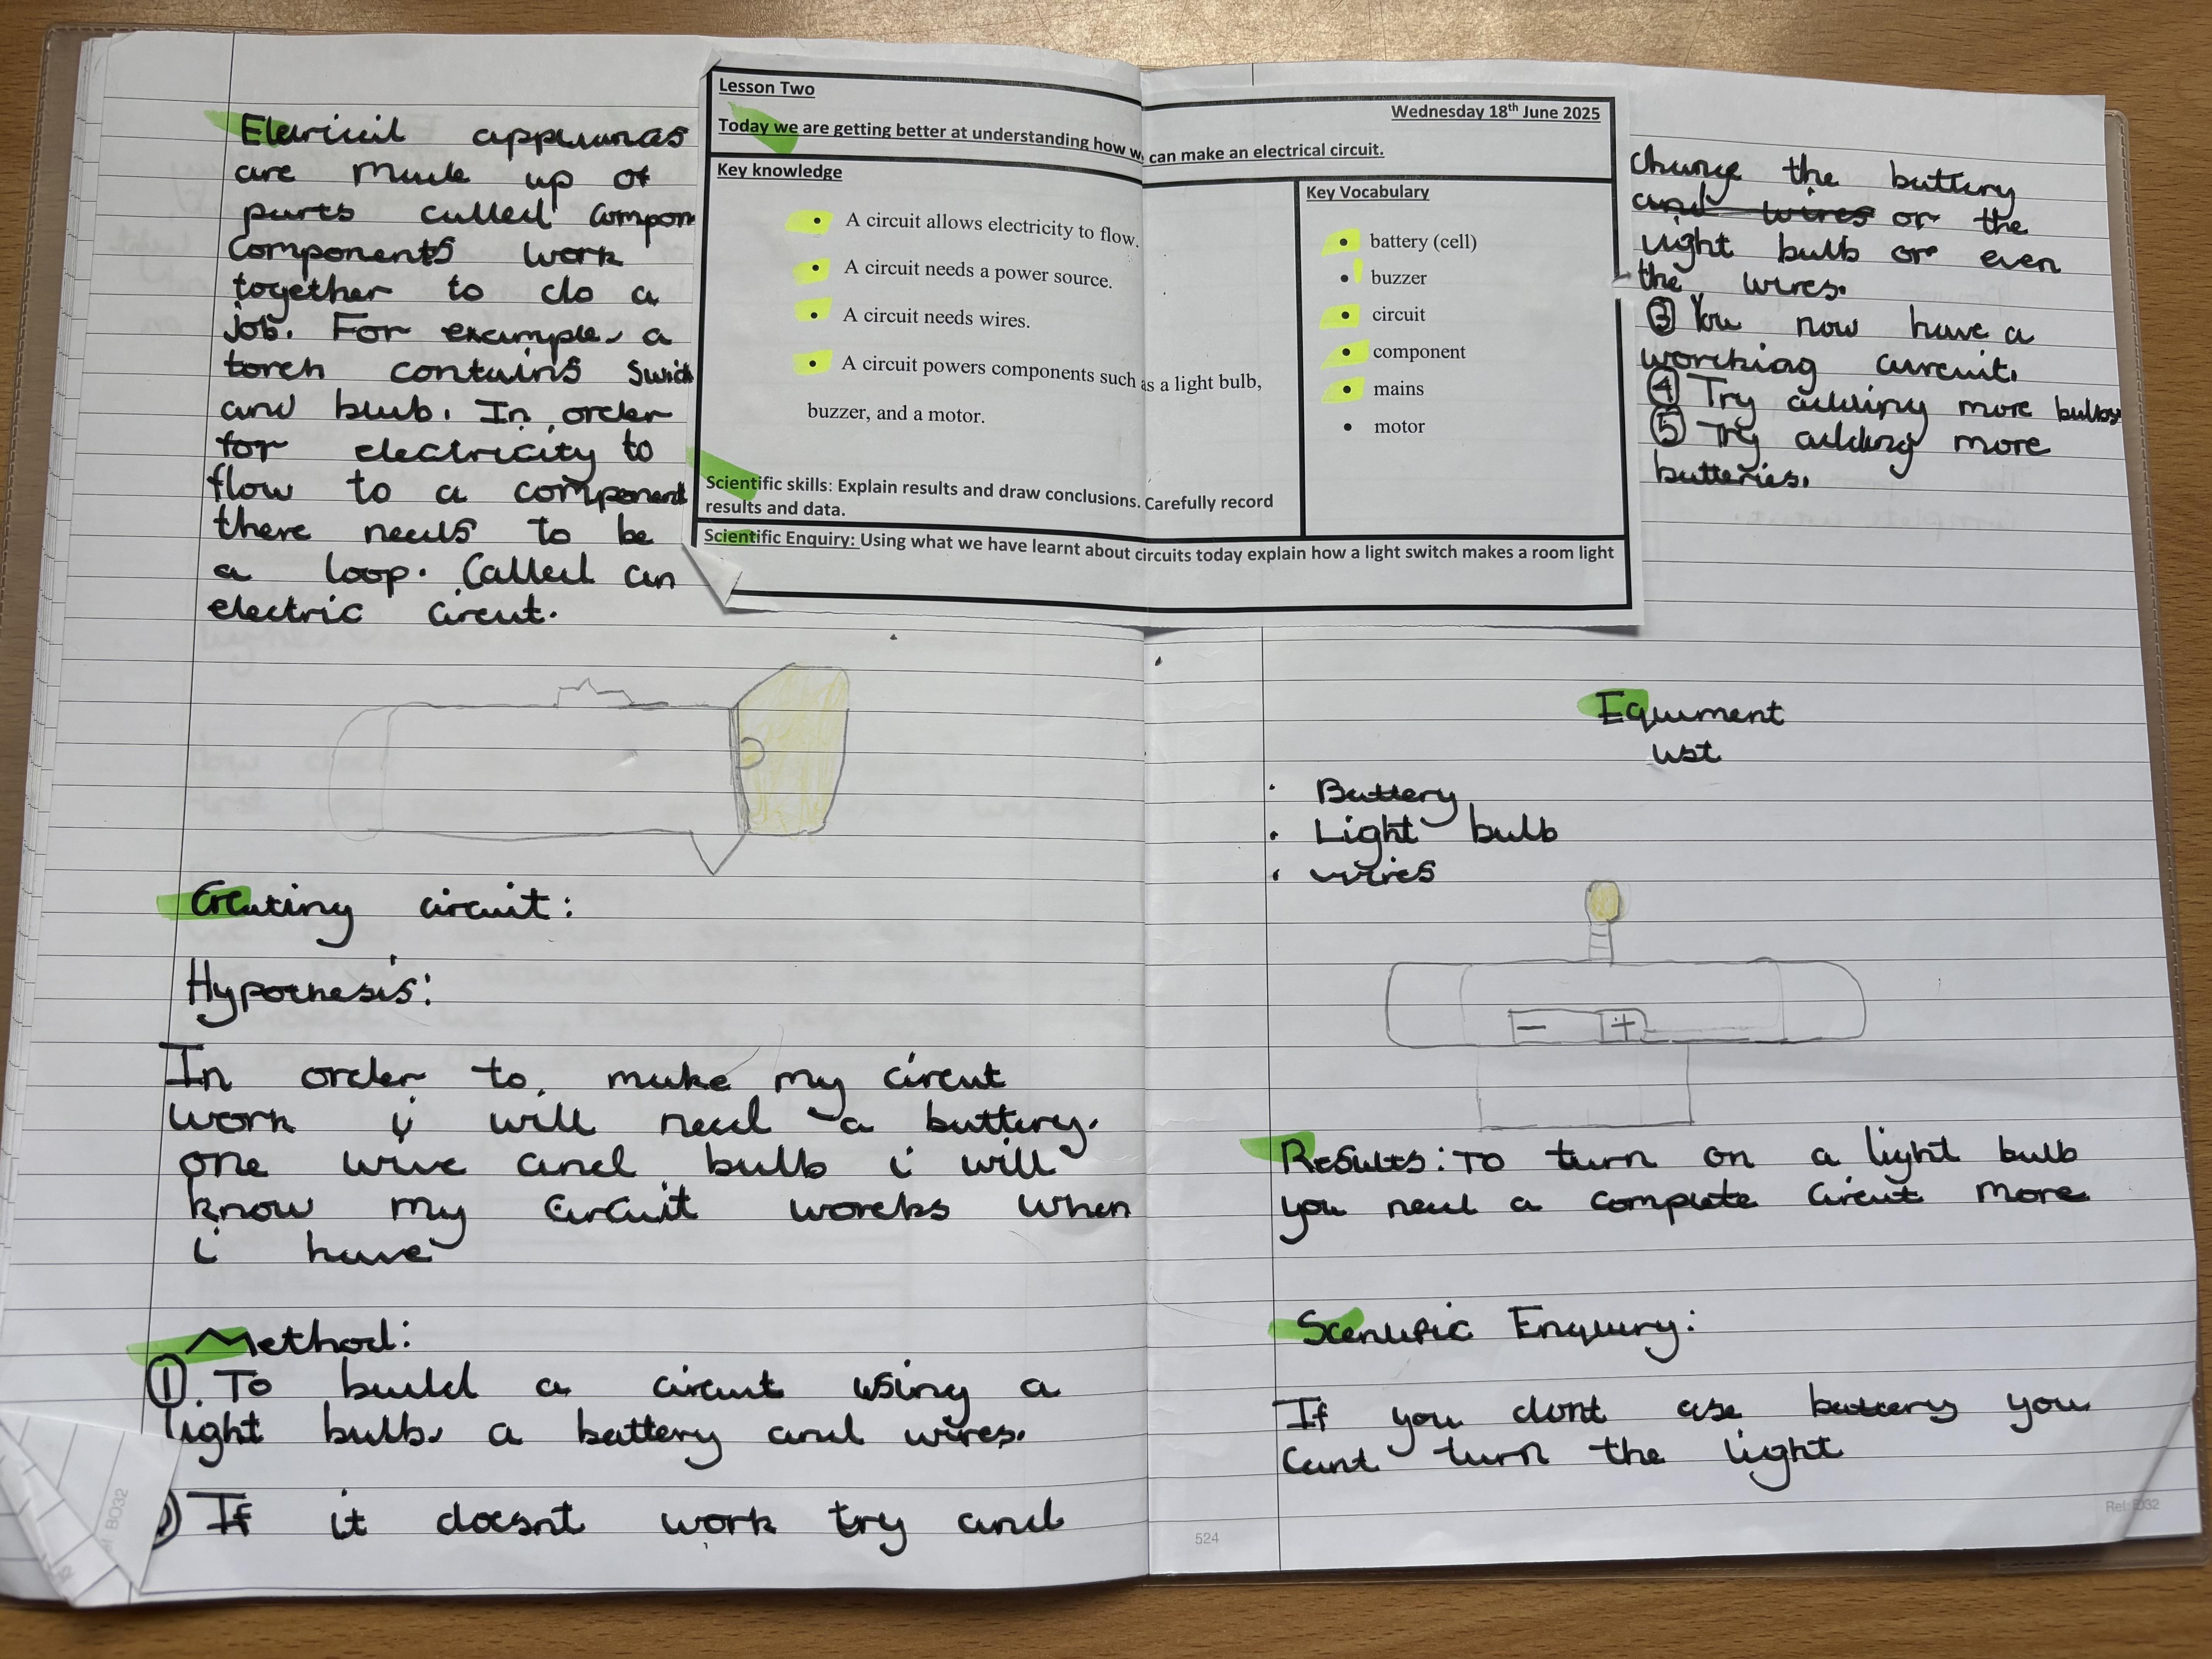 Elericil appliances
are made up of
parts called compon
components work
together to do a
job. For example, a
torch contains switch
and blub. In order
for electricity to
flow to a component
there needs to be
a loop. Called an
electric circut.
Creating circuit:
Hypothesis:
In order to, make my circut
work i will need a battery.
one wire and bulb i will
know my circuit worcks when
i have
Method:
① To build a circut using a
light bulb, a battery and wires.
If it doesnt work try and
Lesson Two
Wednesday 18th June 2025
Today we are getting better at understanding how w can make an electrical circuit.
Key knowledge
• A circuit allows electricity to flow.
• A circuit needs a power source.
• A circuit needs wires.
• A circuit powers components such as a light bulb,
buzzer, and a motor.
Key Vocabulary
• battery (cell)
• buzzer
• circuit
• component
• mains
• motor
Scientific skills: Explain results and draw conclusions. Carefully record
results and data.
Scientific Enquiry: Using what we have learnt about circuits today explain how a light switch makes a room light
change the battery
and wires or the
light bulb or even
the wires.
③ You now have a
worcking circuit.
④ Try adding more bulbs
⑤ Try adding more
batteries.
Equiment
list
• Battery
• Light bulb
• wires
- +
Results: To turn on a light bulb
you need a complete circut more
Scenitific Enquiry:
If you dont use battery you
cant turn the light
524
BO32